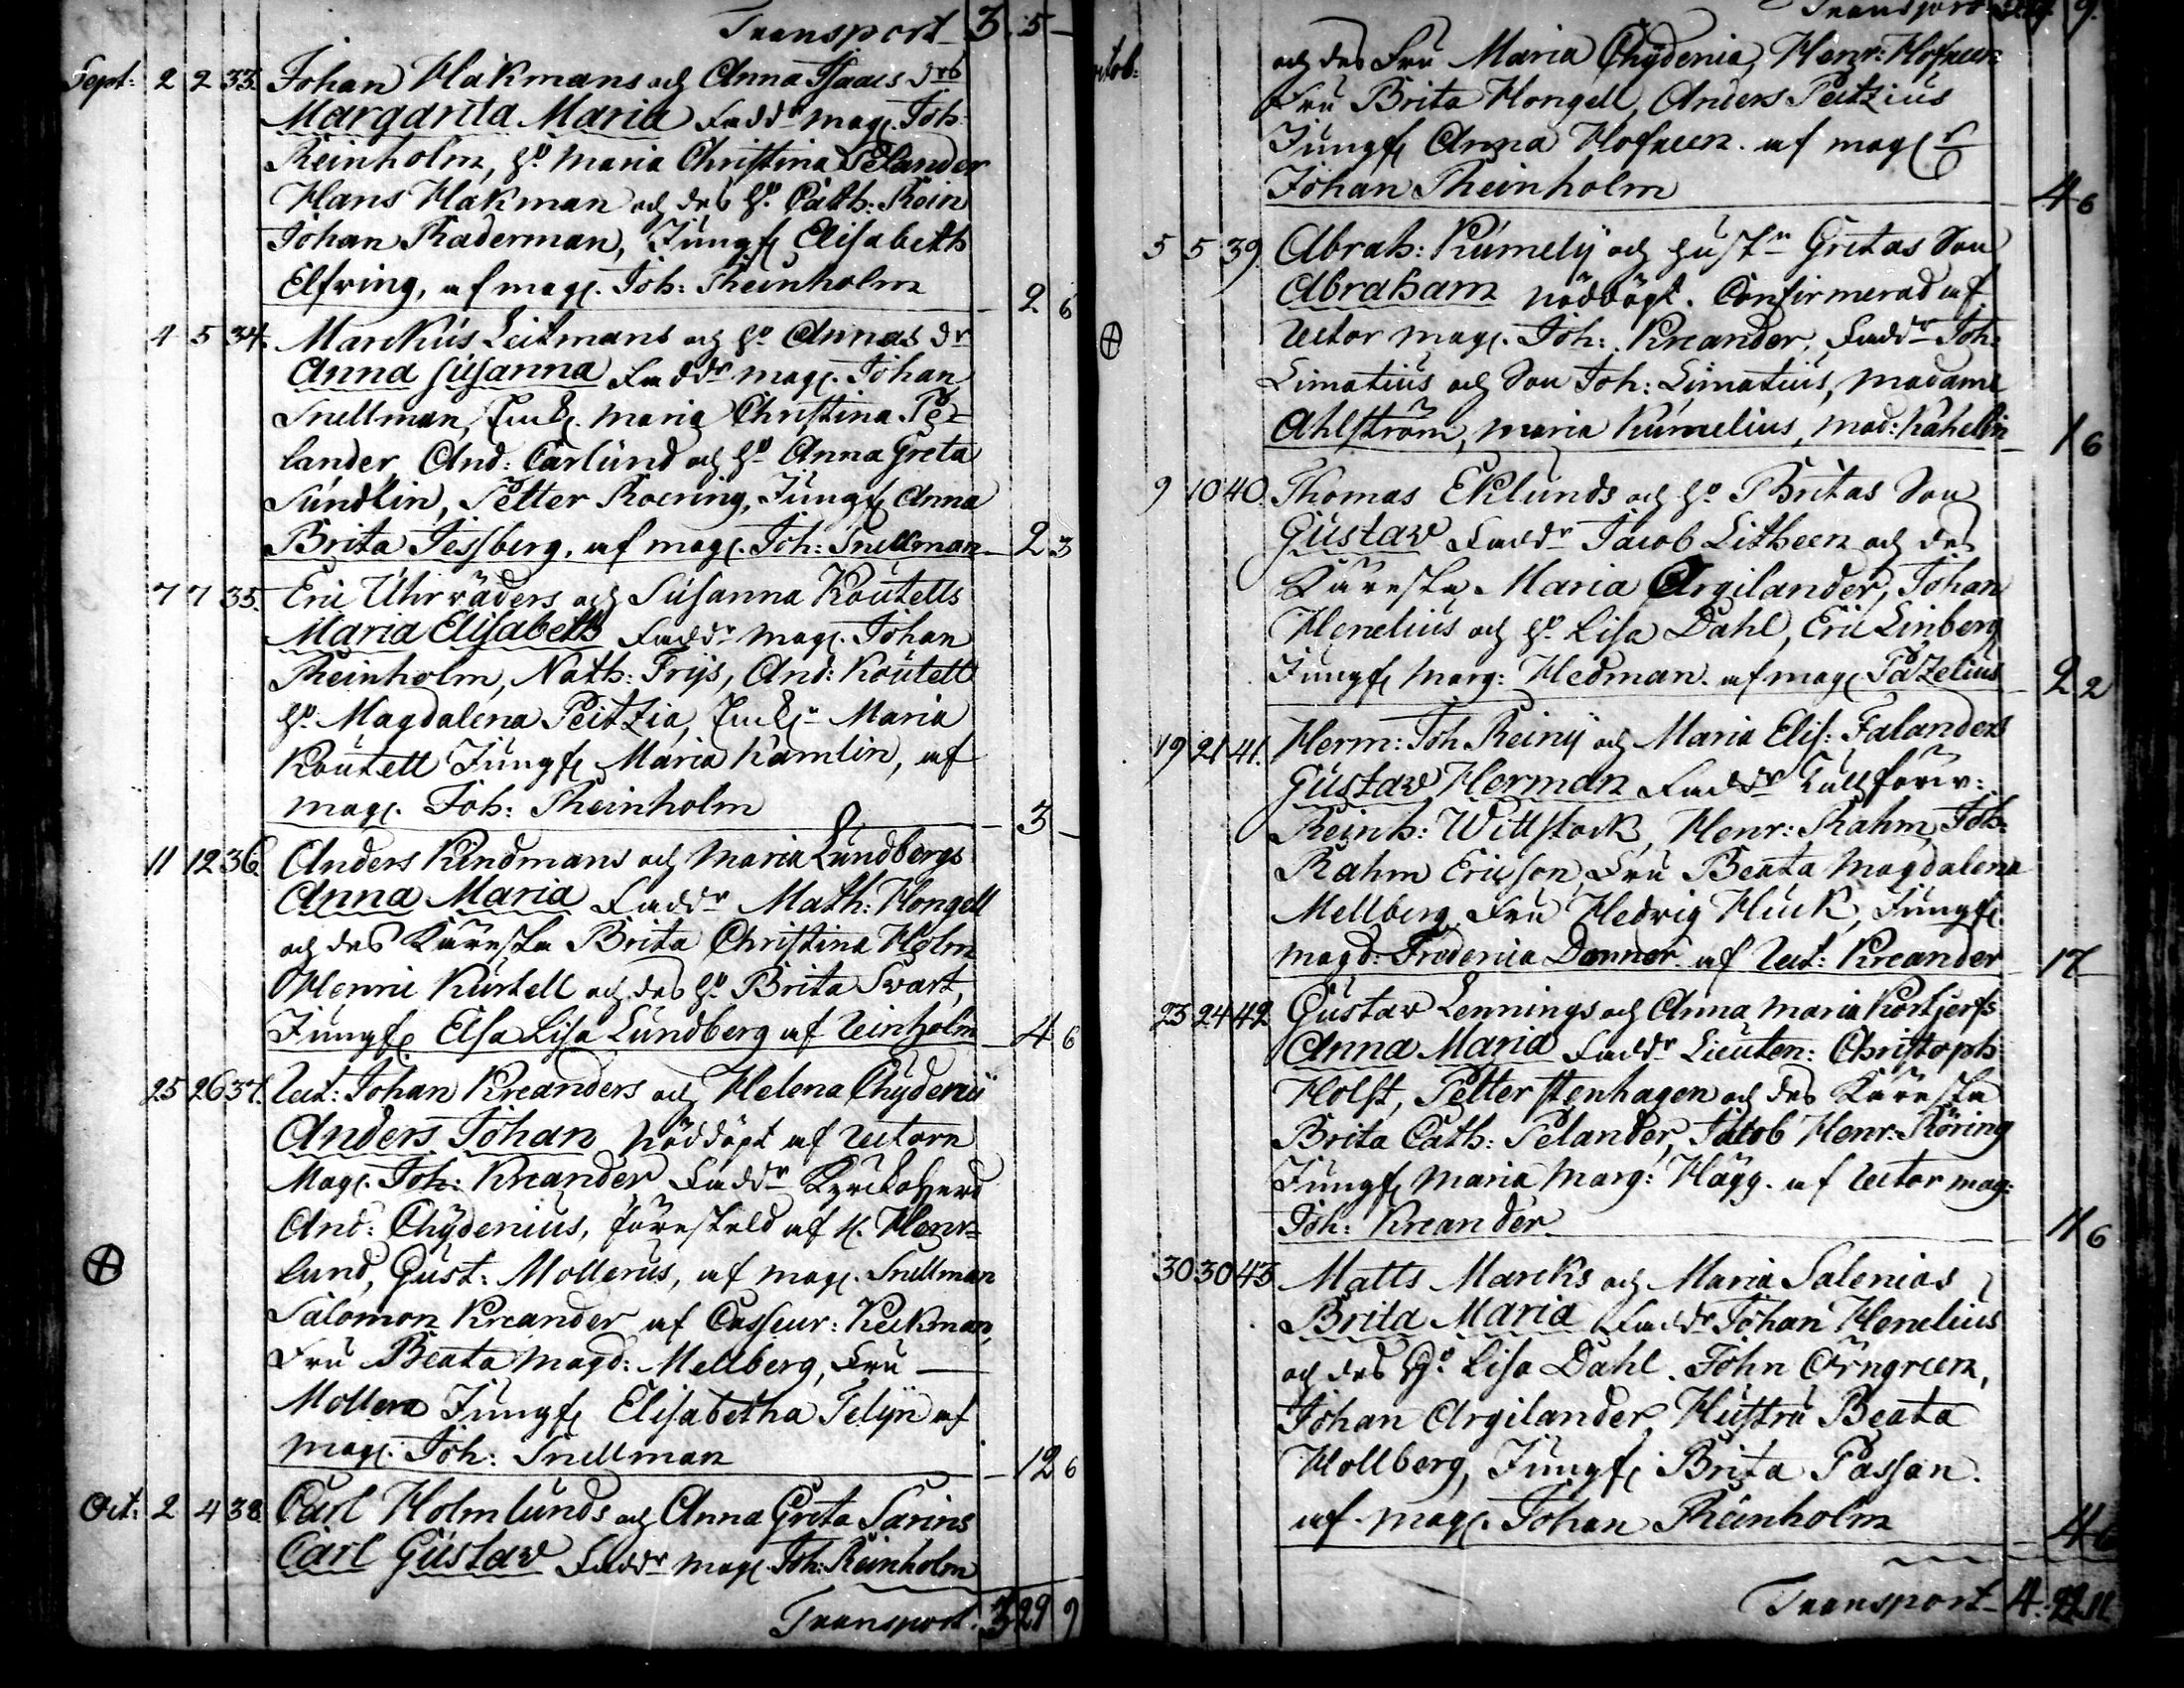 Transport 3 5 –
Sept: 2 2 33. Johan Hakmans och Anna Isaacs drs
Margarita Maria Faddr mag. Joh:
Reinholm, ho Maria Christina Pelander
Hans Hakman och des ho. Cath: Rein
Johan Raderman, Jungf. Elisabeth
Elfving, af mag. Joh: Rheinholm 2 6
4 5 34. Markus Leitmans och ho Annas dr
Anna Susanna Faddr mag. Johan
Snellman, Maria Christina Pe-
lander And: Carlund och ho Anna Greta
Sundlin, Petter Roering, Jungf. Anna
Brita Jesberg, af mag. Joh: Snellman 2 3
7 7 35. Eric Uhrväders och Susanna Koutells
Maria Elisabeth Faddr mag. Johan
Rheinholm, Nath: Frijs, And: Koutell
ho. Magdalena Peitzia, Maria
Koutell Jungf. Maria Kamlin, af
mag. Joh: Rheinholm 3 –
11 12 36. Anders Kindmans och Maria Lundbergs
Anna Maria Faddr Math: Hongell
och des Käresta Brita Christina Holm
Henric Kurtell och des ho Brita Svart,
Jungf. Elsa Lisa Lundberg af Reinholm 4 6
25 26 37. Rect: Johan Kreanders och Helena Chydenii
Anders Johan nöddöpt af Rectorn
Mag. Joh: Kreander Faddr Kyrckoherd
And: Chydenius, föresteld af H. Henr=
lund, Gust: Mollerus, af mag. Snellman
Salomon Kreander af Casseur: Keckman,
Fru Beata Magd: Mellberg, Fru —
Mollera Jungf. Elisabetha Telijn af
mag. Joh: Snellman 12 6
Oct: 2 4 38. Carl Holmlunds och Anna Greta Sarins
Carl Gustaw Faddr mag. Joh: Reinholm
Transport. 3 29 9
Transport 9.
octob: och des Fru Maria Chydenia, Henr: Hofreen
Fru Brita Hongell, Anders Peitzius
Jungf. Anna Hofreen. af mag.
Johan Rheinholm 4 6
5 5 39. Abrah: Kumelij och hustr Gretas Son
Abraham nöddöpt. Confirmerad af
Rector mag. Joh: Kreander, Faddr Joh:
Limatius och Son Joh: Limatius, Madame
Ahlström, Maria Kumelius, mad: Kahelin 1 6
9 10 40. Thomas Eklunds och ho Britas Son
Gustaw Faddr Jacob Litheen och des
Käresta Maria Argilander, Johan
Henelius och ho Lisa Dahl, Eric Linberg
Jungf. Marg: Hedman. af mag. Pazelius 2 2
19 21 41. Herm: Joh Reinij och Maria Elis: Falanders
Gustaw Herman Faddr Tullförw:
Reinh: Wittstock, Henr: Rahm, Joh:
Rahm Ericson, Fru Beata Magdalena
Mellberg Fru Hedvig Huck, Jungf.
Magd: Fredenia Donner. af Rect: Kreander 17
23 24 42. Gustav Lennings och Anna Maria Kortjerfs
Anna Maria Faddr Lieuten: Christoph
Holst, Petter Stenhagen och des Käresta
Brita Cath: Pelander, Jacob Henr: Röring
Jungf. Maria Marg: Hägg. af Rector mag:
Joh: Kreander 11 6
30 30 43. Matts Marcks och Maria Salenias
Brita Maria Faddr Johan Henelius
och des ho. Lisa Dahl. John Örngreen,
Johan Argilander, Hustru Beata
Hollberg, Jungf. Brita Passan.
af mag. Johan Rheinholm 4 6
Transport 4.